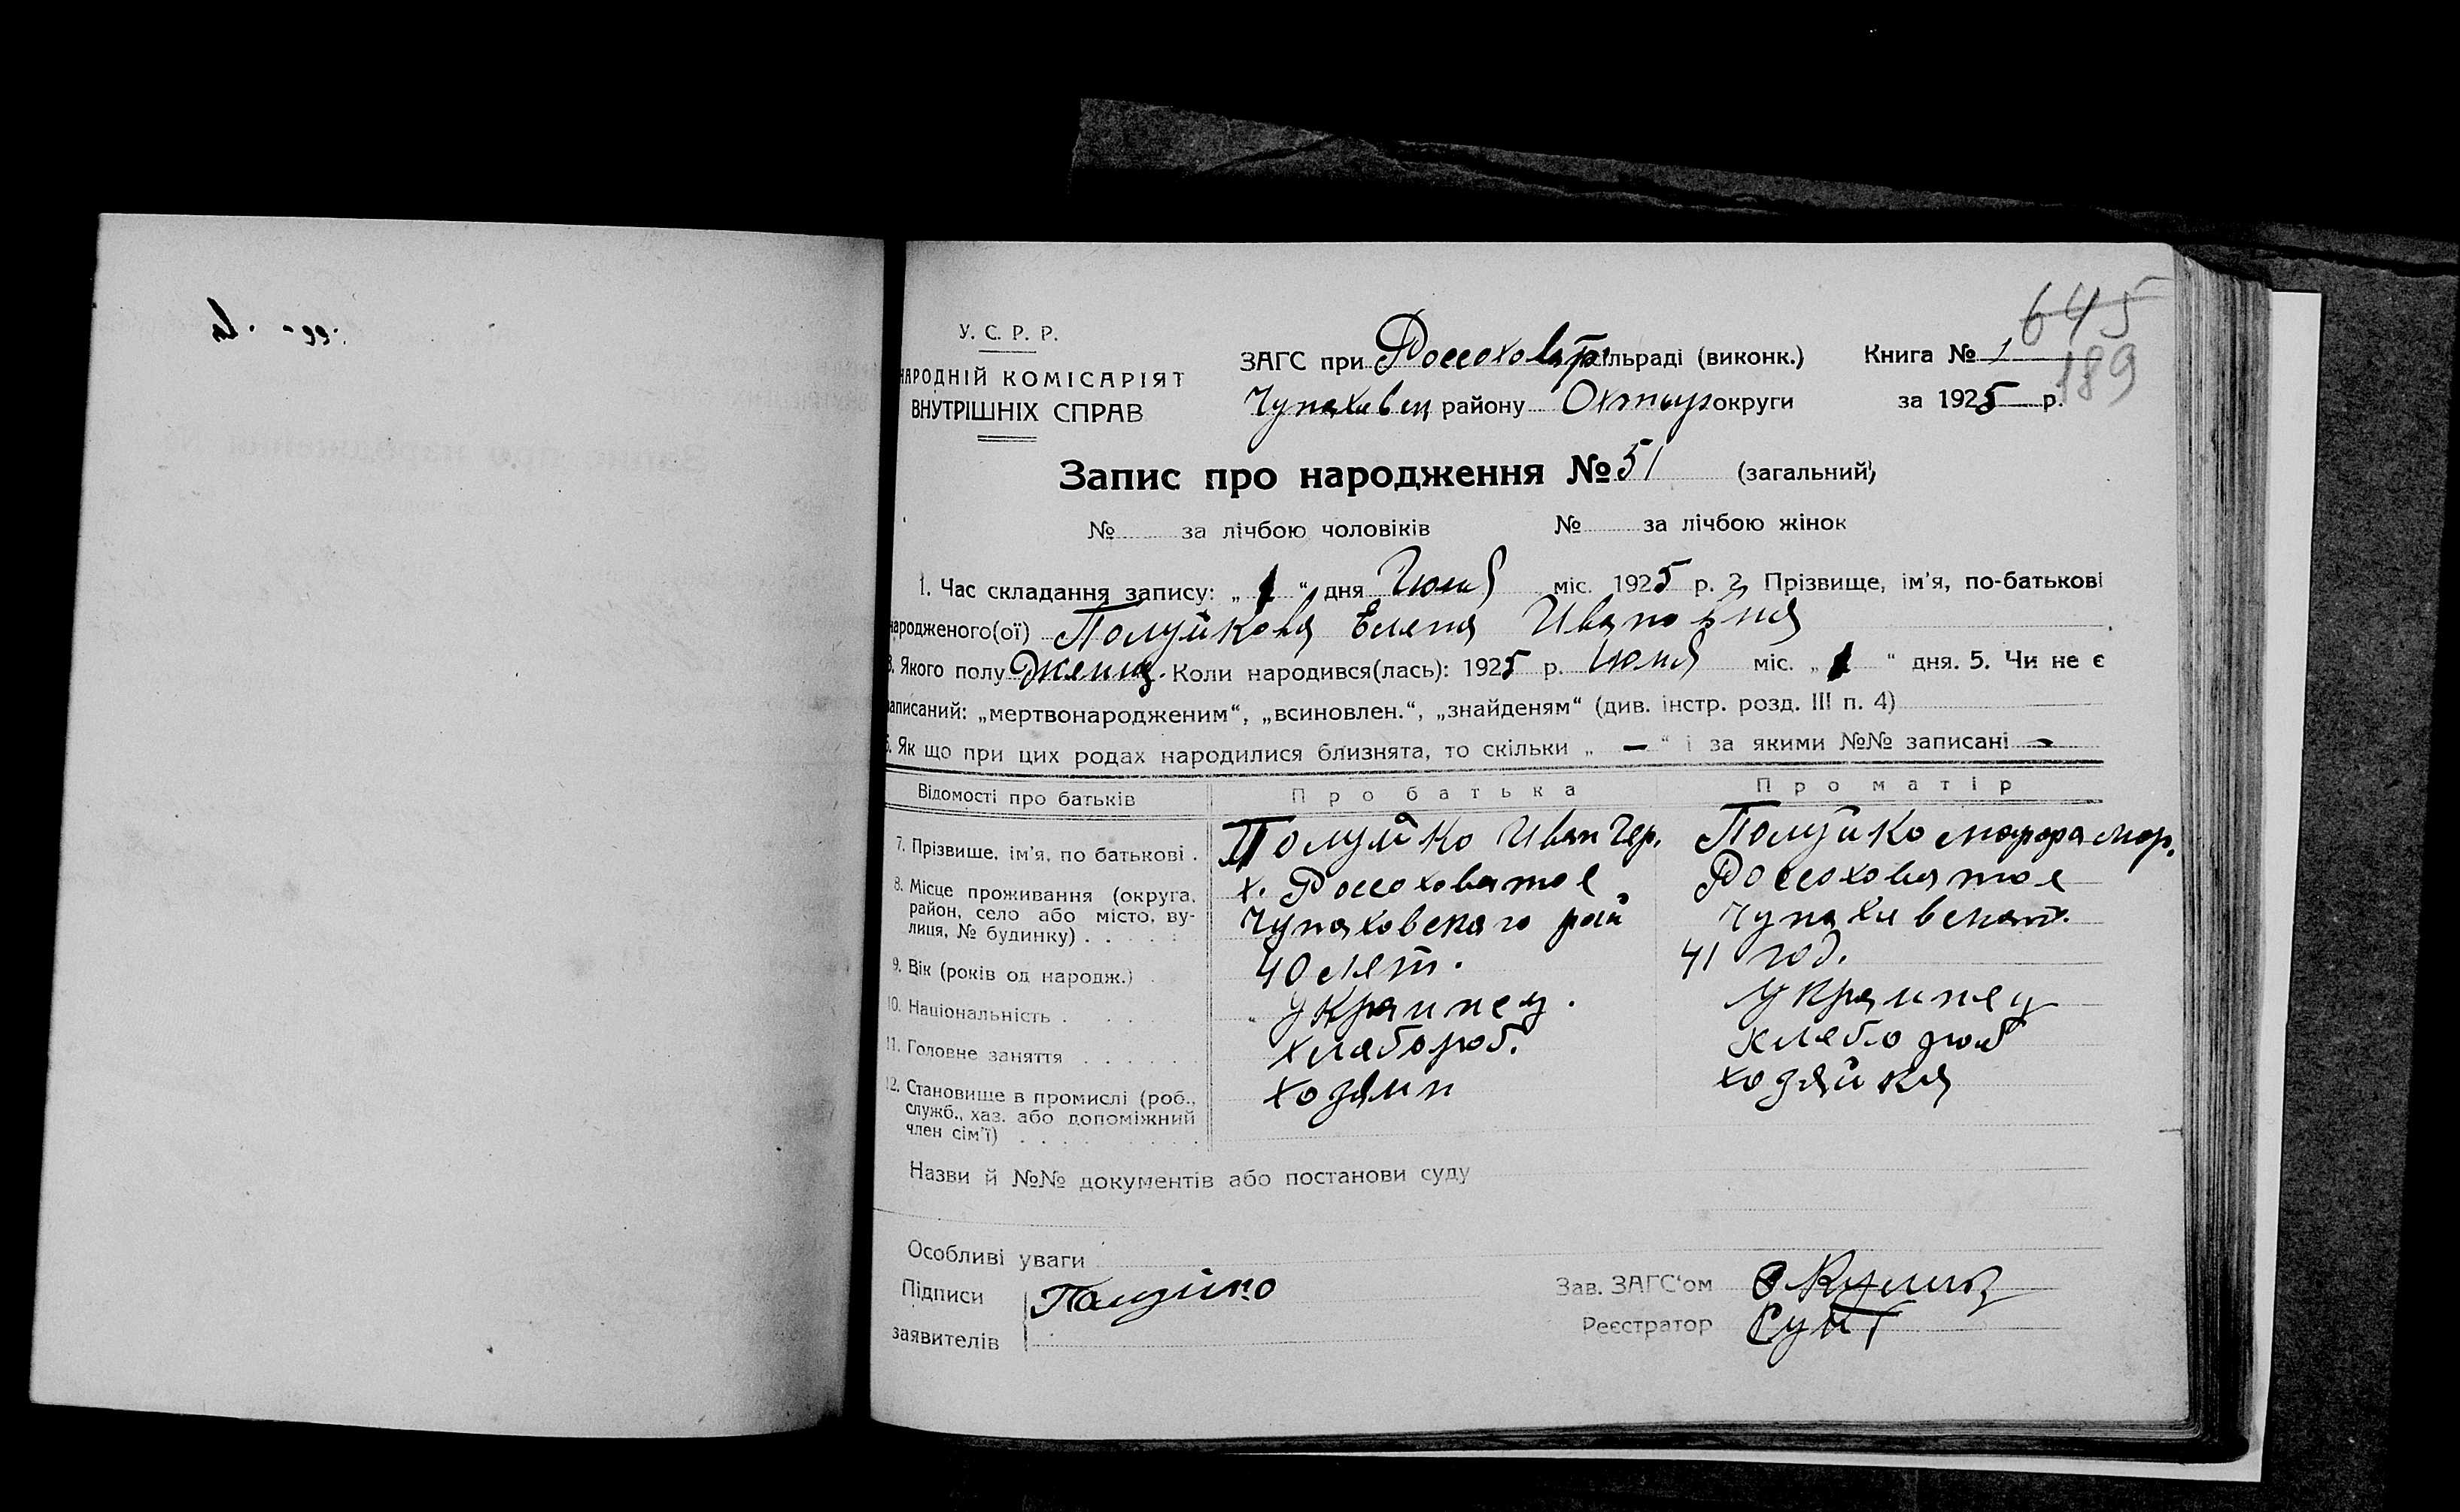 645
189
У. С. Р. Р.
НАРОДНІЙ КОМІСАРІЯТ
ВНУТРІШНІХ СПРАВ
ЗАГС при Россоховат сільраді (виконк.)
Чупаховск району Охтыр округи
Книга № 1
за 1925 р.
Запис про народження № 51 (загальний)
№ за лічбою чоловіків № за лічбою жінок
1. Час складання запису: „ 1 “ дня Июля міс. 1925 р. 2. Прізвище, ім'я, по-батькові
народженого(ої) Полуйкова Елена Ивановна
3. Якого полу женщ. Коли народився(лась): 1925 р. Июля міс. „ 1 “ дня. 5. Чи не є
записаний: „мертвонародженим“, „всиновлен.“, „знайденям“ (див. інстр. розд. III п. 4)
6. Як що при цих родах народилися близнята, то скільки „ — “ і за якими №№ записані —
Відомості про батьків Про батька Про матір
7. Прізвише, ім'я, по батькові . Полуйко Иван Гер. Полуйко Марфа Мар.
8. Місце проживання (округа, район, село або місто, ву-лиця, № будинку) . . . . х. Россоховатое Чупаховскаго рай Россоховатое
9. Вік (років од народж.) . 40 лет. 41 год.
10. Національність . . . . Украинец. Украинец
11. Головне заняття . . . . . . хлабороб. хлебороб
12. Становище в промислі (роб., служб., хаз. або допоміжний член сім'ї) . . . . . . хозяин хозяйка
Назви й №№ документів або постанови суду
Особливі уваги
Підписи
заявителів
Полуйко
Зав. ЗАГС'ом
Реєстратор